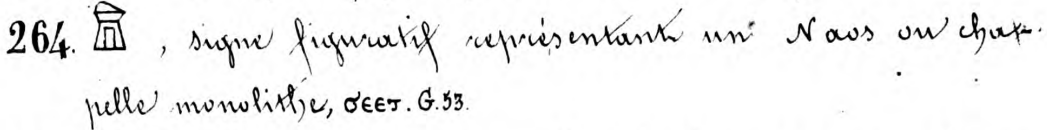 264. 𓉫, signe figuratif représentant un Naos ou cha-
pelle monolithe, ϭⲉⲉⲧ. G.53.